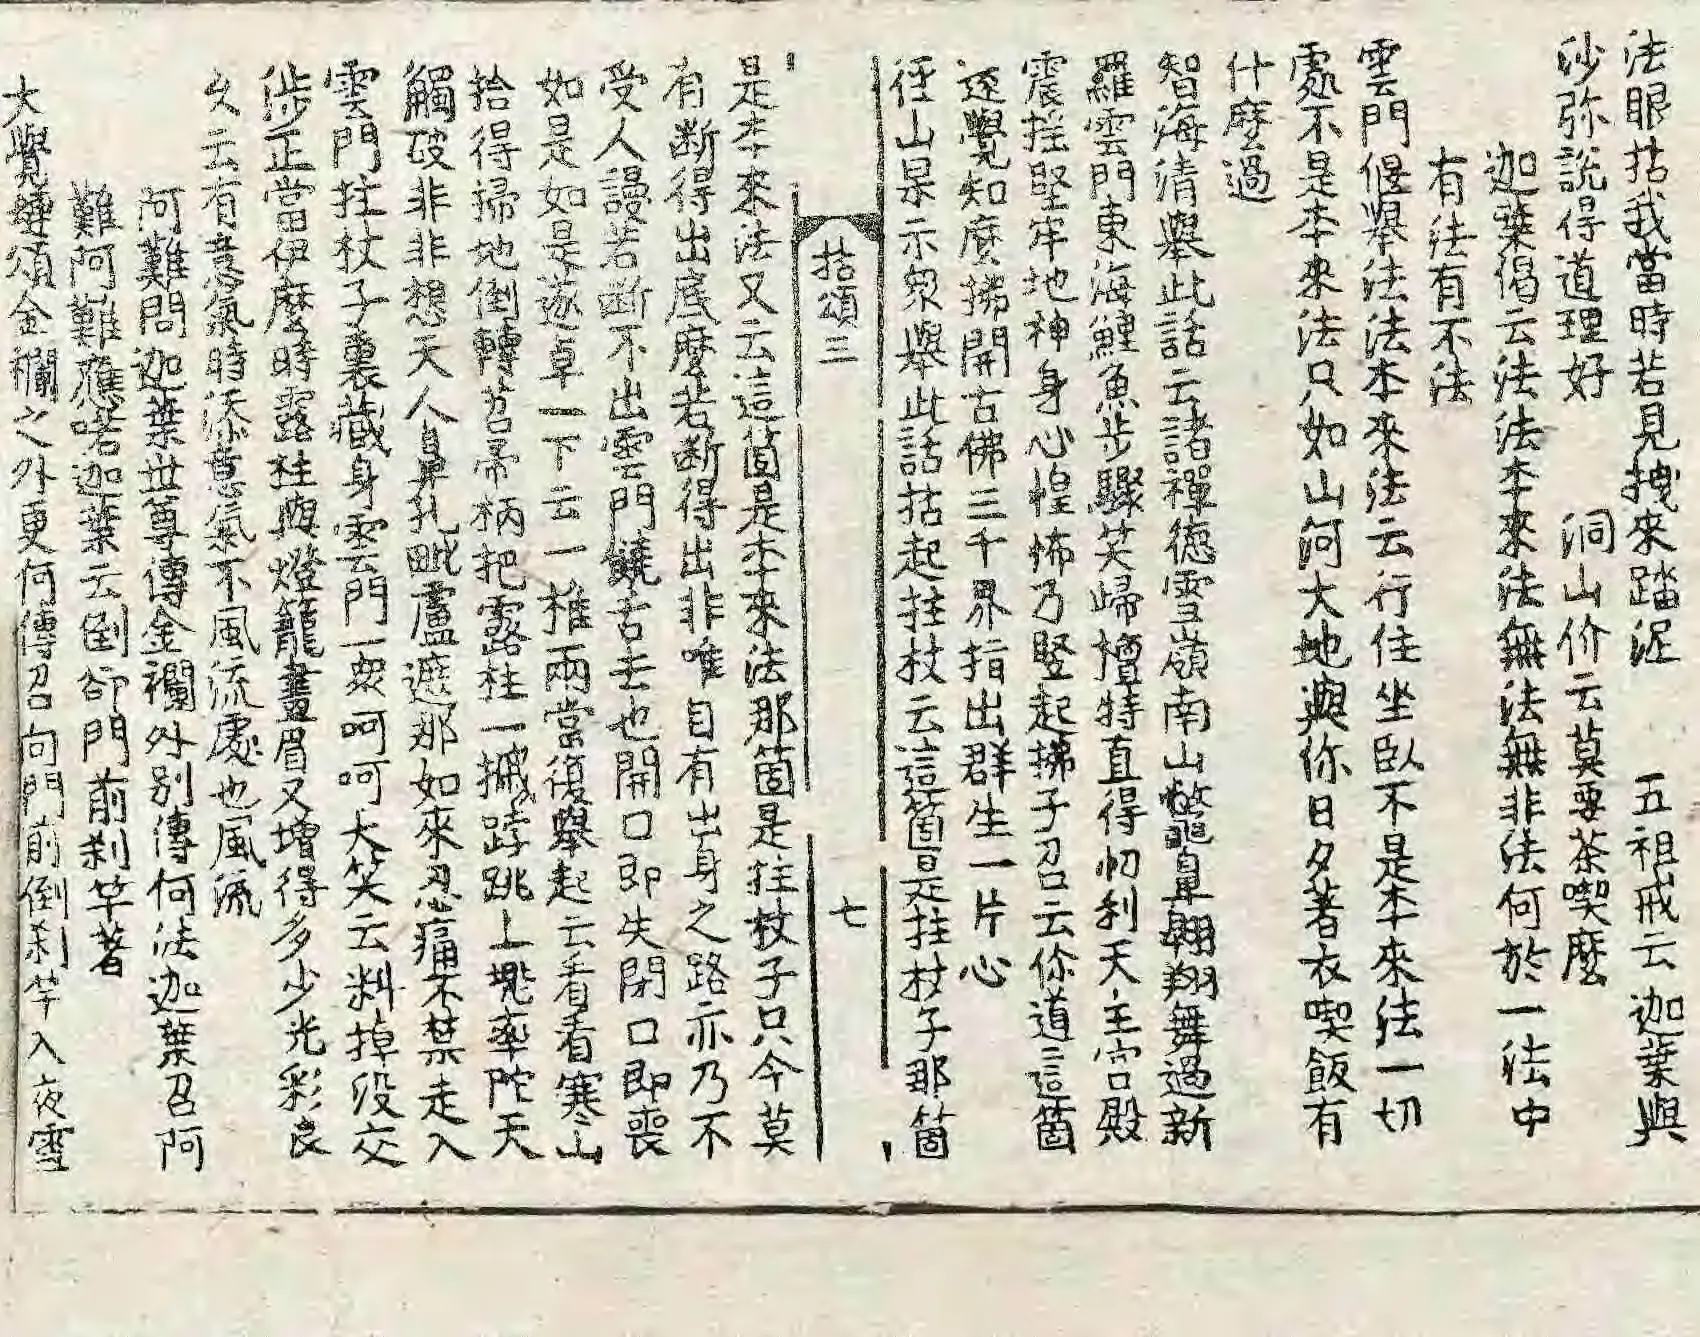 法眼拈我當時若見拽來踏泥　五祖戒云迦葉與
沙弥說得道理好　洞山价云莫要茶喫麼
迦葉偈云法法本來法無法無非法何於一法中
有法有不法
雲門偃舉法法本來法云行住坐臥不是本來法一切
處不是本來法只如山河大地與你日夕著衣喫飯有
什麼過
智海清舉此話云諸禪德雪嶺南山鼈鼻翱翔舞過新
羅雲門東海鯉魚步驟笑歸檀特直得忉利天主宮殿
震搖堅牢地神身心惶怖乃竪起拂子召云你道這箇
逐覺知麼撥開古佛三千界指出群生一片心
徑山杲示眾舉此話拈起拄杖云這箇是拄杖子那箇
拈頌三　七
是本來法又云這箇是本來法那箇是拄杖子只今莫
有断得出底麼若断得出非唯自有出身之路亦乃不
受人謾若断不出雲門饒舌去也開口即失閉口即喪
如是如是遂卓一下云一椎兩當復舉起云看看寒山
拾得掃地倒轉苕帚柄把露柱一摵𨁝跳上兜率陀天
觸破非非想天人鼻孔毗盧遮那如來忍痛不禁走入
雲門拄杖子裏藏身雲門一衆呵呵大笑云料掉没交
涉正當伊麼時露柱與燈籠畫眉又增得多少光彩良
久云有意氣時添意氣不風流處也風流
阿難問迦葉世尊傳金襴外別傳何法迦葉召阿
難阿難應喏迦葉云倒卻門前刹竿著
大覺璉頌金襴之外更何傳召向門前倒刹竿入夜雪